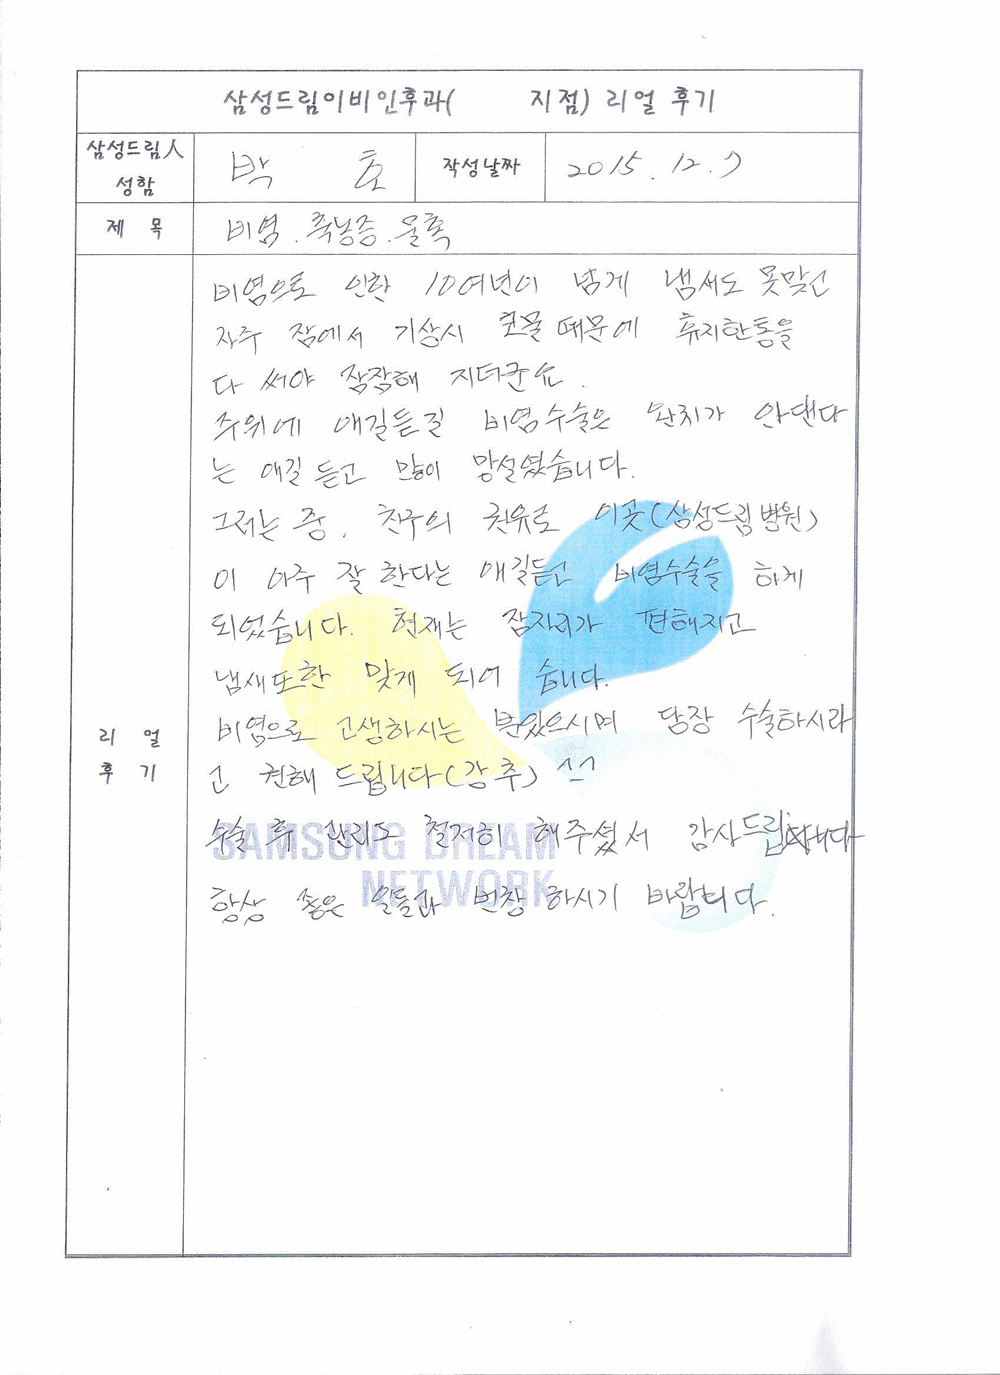 삼성드림이비인후과( 지점) 리얼 후기
삼성드림人 성함 박 호 작성날짜 2015. 12. 7
제 목 비염. 축농증. 물혹
리 얼 후 기
비염으로 인한 10여년이 넘게 냄새도 못맞고
자주 잠에서 기상시 코물 때문에 휴지한통을
다 써야 잠잠해 지더군요.
주위에 얘길듣길 비염수술은 완치가 안댄다
는 얘길 듣고 많이 망설였습니다.
그러는 중. 친구의 권유로 이곳(삼성드림병원)
이 아주 잘 한다는 얘길듣고 비염수술을 하게
되었습니다. 현재는 잠자리가 편해지고
냄새또한 맞게 되어 습니다.
비염으로 고생하시는 분있으시며 당장 수술하시라
고 권해 드립니다(강추) ^^
수술 후 관리도 철저히 해주셨서 감사드립니다
항상 좋은 일들과 번창 하시기 바랍니다.
SAMSUNG DREAM
NETWORK